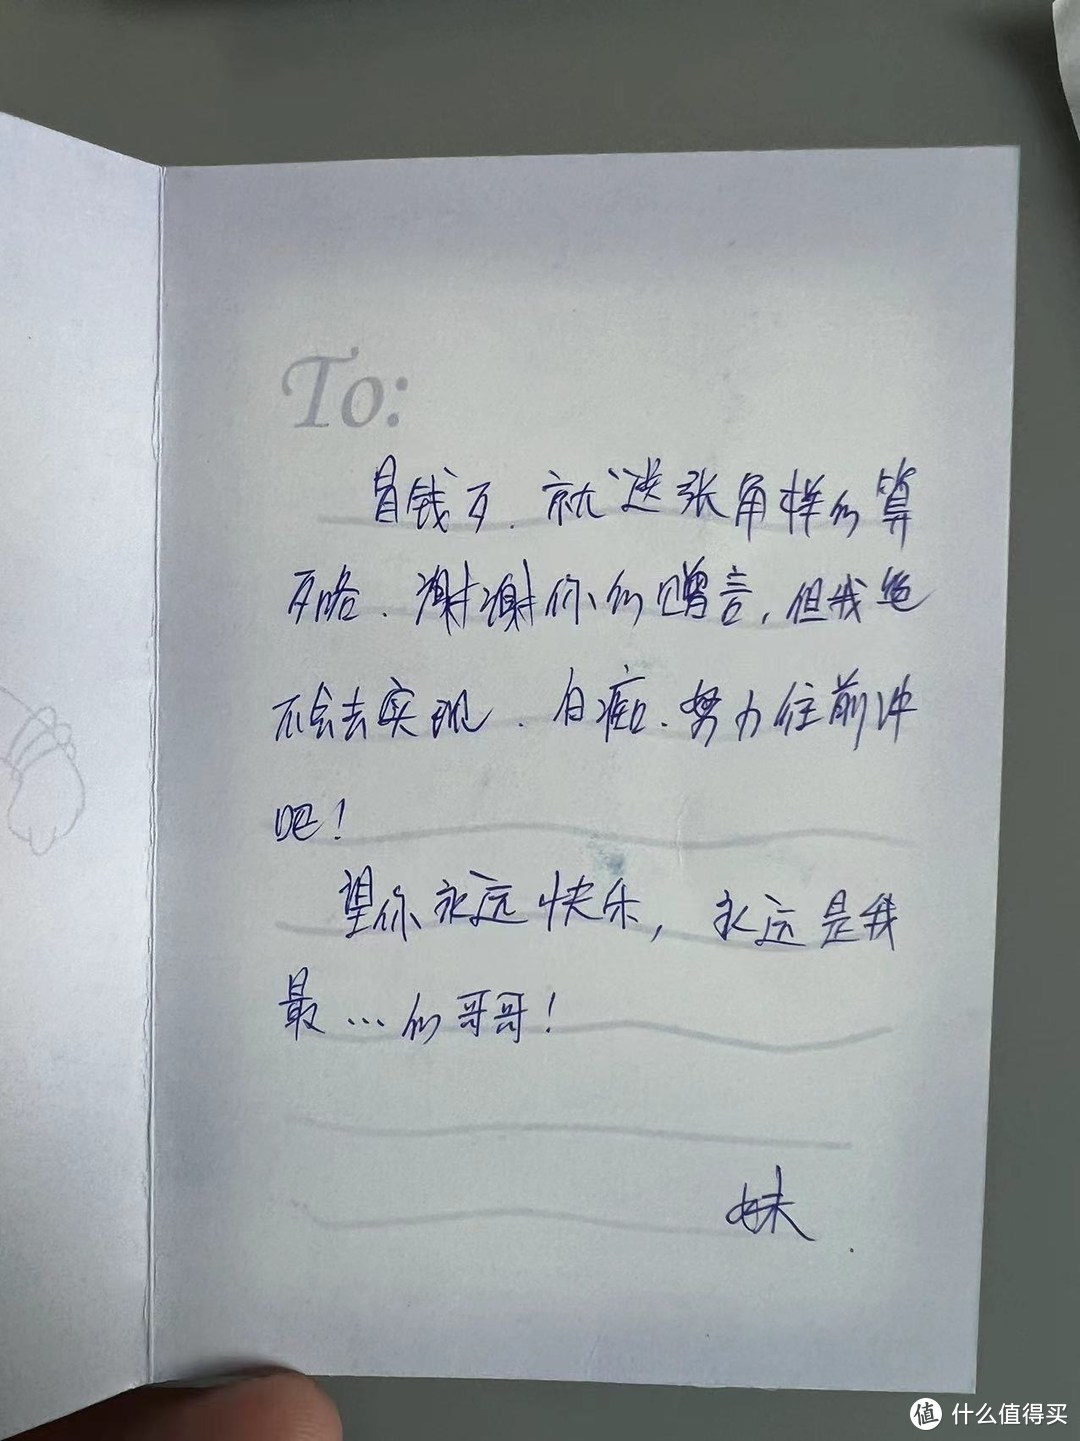 To:
钱了．就送张角样的算
了咯．谢谢你的赠言，但我绝
不会去实现．白痴．努力往前冲
吧！
望你永远快乐，永远是我
最…的哥哥！
妹
值 什么值得买